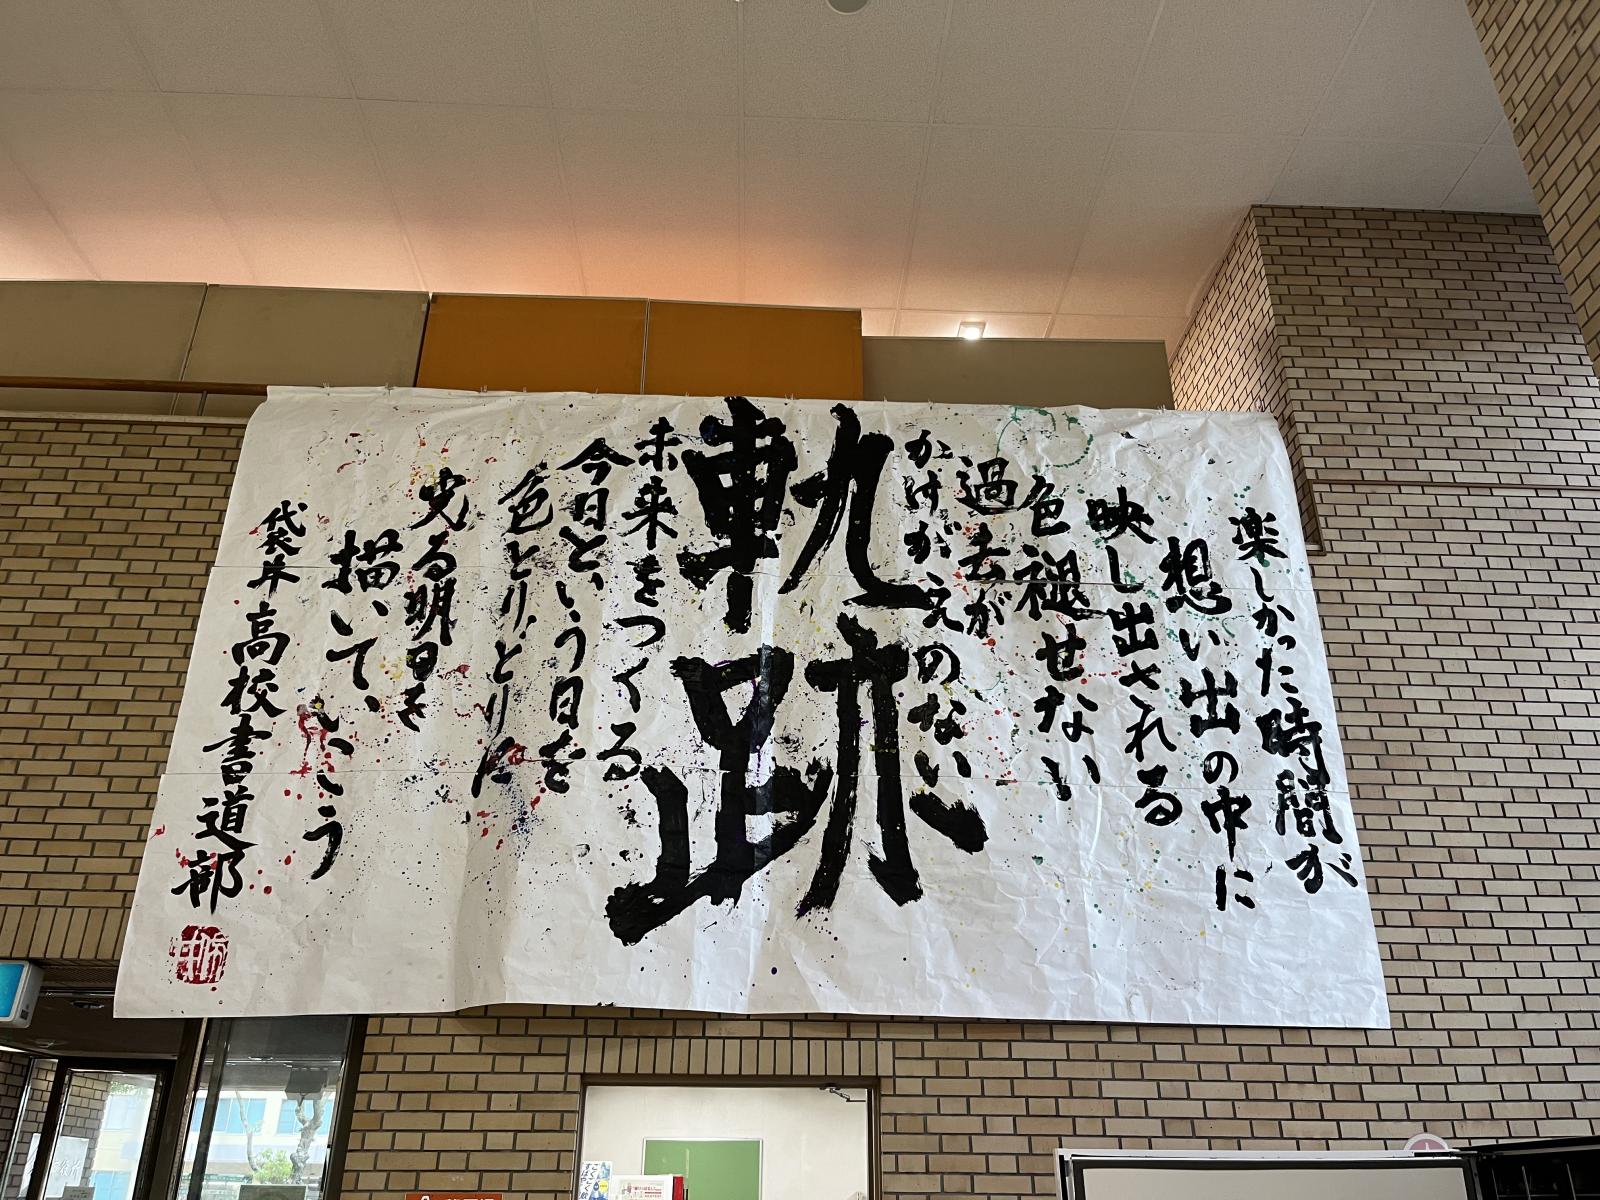 楽しかった時間が
想い出の中に
映し出される
色褪せない
過去が
かけがえのない
軌跡
未来をつくる
今日という日を
色とりどりに
光る明日を
描いていこう
袋井高校書道部